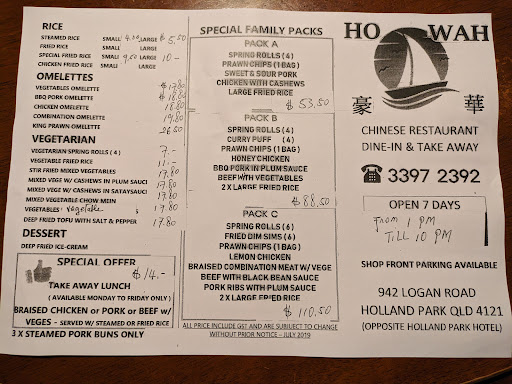 RICE
STEAMED RICE SMALL 4.00 LARGE $ 5.50
FRIED RICE SMALL LARGE
SPECIAL FRIED RICE SMALL 9.00 LARGE 10-
CHICKEN FRIED RICE SMALL LARGE
OMELETTES
VEGETABLES OMELETTES $ 17.80
BBQ PORK OMELETTE $ 18.80
CHICKEN OMELETTE 18.80
COMBINATION OMELETTE 19.80
KING PRAWN OMELETTE 26.80
VEGETARIAN
VEGETARIAN SPRING ROLLS ( 4 ) 7.-
VEGETABLE FRIED RICE 11.-
STIR FRIED MIXED VEGETABLES 17.80
MIXED VEGE W/ CASHEWS IN PLUM SAUCE 17.80
MIXED VEGE W/ CASHEWS IN SATAYSAUCE 17.80
MIXED VEGETABLE CHOW MEIN 17.80
VEGETABLES' Vegetable 17.80
DEEP FRIED TOFU WITH SALT & PEPPER 17.80
DESSERT
DEEP FRIED ICE-CREAM
SPECIAL OFFER
$14.-
TAKE AWAY LUNCH
( AVAILABLE MONDAY TO FRIDAY ONLY )
BRAISED CHICKEN or PORK or BEEF w/
VEGES - SERVED W/ STEAMED OR FRIED RICE
3 X STEAMED PORK BUNS ONLY
SPECIAL FAMILY PACKS
PACK A
SPRING ROLLS ( 4 )
PRAWN CHIPS ( 1 BAG )
SWEET & SOUR PORK
CHICKEN WITH CASHEWS
LARGE FRIED RICE
$ 53.50
PACK B
SPRING ROLLS ( 4 )
CURRY PUFF ( 4 )
PRAWN CHIPS ( 1 BAG )
HONEY CHICKEN
BBQ PORK IN PLUM SAUCE
BEEF WITH VEGETABLES
2 X LARGE FRIED RICE
$ 88.50
PACK C
SPRING ROLLS ( 6 )
FRIED DIM SIMS ( 6 )
PRAWN CHIPS ( 1 BAG )
LEMON CHICKEN
BRAISED COMBINATION MEAT W/ VEGE
BEEF WITH BLACK BEAN SAUCE
PORK RIBS WITH PLUM SAUCE
2 X LARGE FRIED RICE
$ 110.50
ALL PRICE INCLUDE GST AND ARE SUBJUECT TO CHANGE
WITHOUT PRIOR NOTICE - JULY 2019
HO WAH
豪 華
CHINESE RESTAURANT
DINE-IN & TAKE AWAY
☎ 3397 2392
OPEN 7 DAYS
From 1 PM
TILL 10 PM
SHOP FRONT PARKING AVAILABLE
942 LOGAN ROAD
HOLLAND PARK QLD 4121
(OPPOSITE HOLLAND PARK HOTEL)